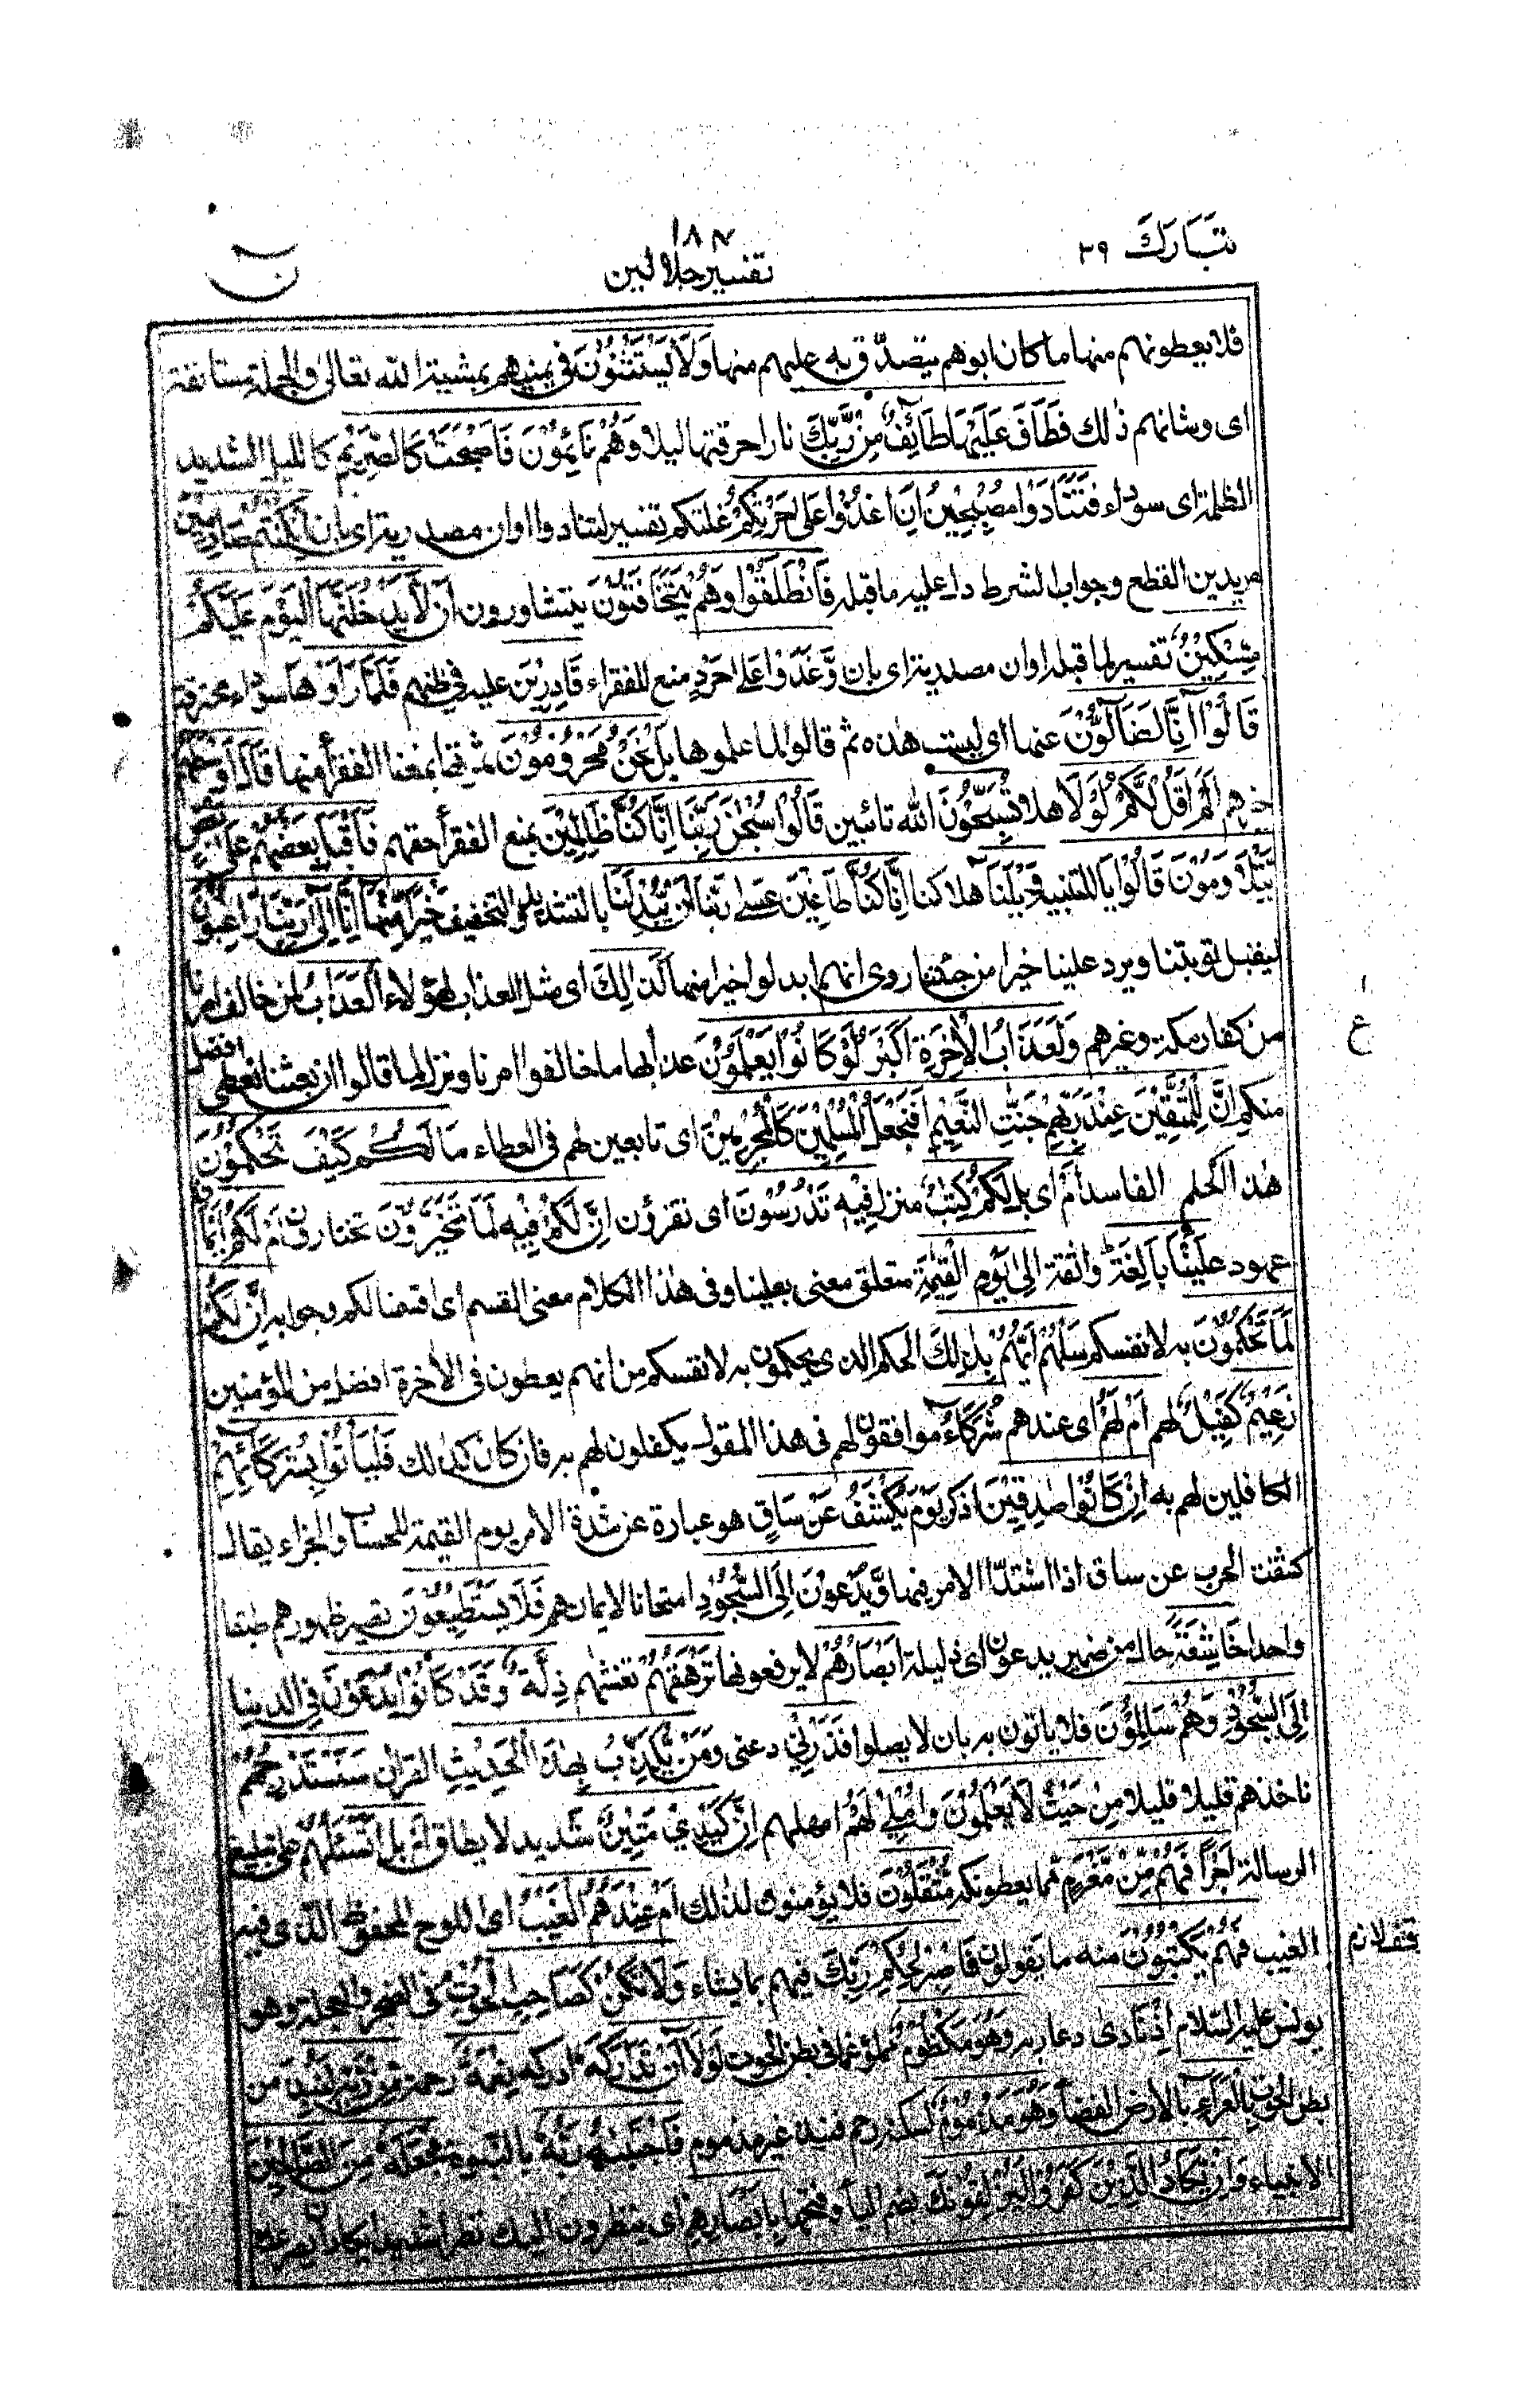 تبارك ٢٩
١٨٤
تفسير جلالين
ن
فلا يعطونهم منها ما كان ابوهم يتصدق به عليهم منها وَلَا يَسْتَثْنُوْنَ في يمينهم بمشية الله تعالى والجملة مستانفة
اى وشانهم ذلك فَطَافَ عَلَيْهَا طَآئِفٌ مِّنْ رَّبِّكَ نار احرقتها ليلا وَهُمْ نَآئِمُوْنَ فَاَصْبَحَتْ كَالصَّرِيْمِ كالليل الشديد
الظلمة اى سوداء فَتَنَادَوْا مُصْبِحِيْنَ اَنِ اغْدُوْا عَلٰى حَرْثِكُمْ غلتكم تفسير لتنادوا او ان مصدرية اى بان اِنْ كُنْتُمْ صَارِمِيْنَ
مريدين القطع وجواب الشرط دل عليه ما قبله فَانْطَلَقُوْا وَهُمْ يَتَخَافَتُوْنَ يتشاورون اَنْ لَّا يَدْخُلَنَّهَا الْيَوْمَ عَلَيْكُمْ
مِّسْكِيْنٌ تفسير لما قبله او ان مصدرية اى بان وَّغَدَوْا عَلٰى حَرْدٍ منع للفقراء قَادِرِيْنَ عليه في ظنهم فَلَمَّا رَاَوْهَا سوداء محترقة
قَالُوْا اِنَّا لَضَآلُّوْنَ عنها اى ليست هذه ثم قالوا لما علموها بَلْ نَحْنُ مَحْرُوْمُوْنَ ثمرتها بمنعنا الفقرأ منها قَالَ اَوْسَطُهُمْ
خيرهم اَلَمْ اَقُلْ لَّكُمْ لَوْلَا هلا تُسَبِّحُوْنَ الله تائبين قَالُوْا سُبْحٰنَ رَبِّنَا اِنَّا كُنَّا ظَالِمِيْنَ بمنع الفقرأ حقهم فَاَقْبَلَ بَعْضُهُمْ عَلٰى بَعْضٍ
يَّتَلَاوَمُوْنَ قَالُوْا يا للتنبيه وَيْلَنَا هلاكنا اِنَّا كُنَّا طَاغِيْنَ عَسٰى رَبُّنَا اَنْ يُّبْدِلَنَا بالتشديد والتخفيف خَيْرًا مِّنْهَا اِنَّا اِلٰى رَبِّنَا رَاغِبُوْنَ
ليقبل توبتنا ويرد علينا خيرا من جنتنا روى انهم ابدلوا خيرا منها كَذٰلِكَ اى مثل العذاب لهؤلاء الْعَذَابُ لمن خالف امرنا
من كفار مكة وغيرهم وَلَعَذَابُ الْاٰخِرَةِ اَكْبَرُ لَوْ كَانُوْا يَعْلَمُوْنَ عذابها ما خالفوا امرنا ونزل لما قالوا ان بعثنا نعطى افضل
منكم اِنَّ لِلْمُتَّقِيْنَ عِنْدَ رَبِّهِمْ جَنّٰتِ النَّعِيْمِ اَفَنَجْعَلُ الْمُسْلِمِيْنَ كَالْمُجْرِمِيْنَ اى تابعين لهم في العطاء مَا لَكُمْ كَيْفَ تَحْكُمُوْنَ
هذا الحكم الفاسد اَمْ اى بل لَكُمْ كِتٰبٌ منزل فِيْهِ تَدْرُسُوْنَ اى تقرؤن اِنَّ لَكُمْ فِيْهِ لَمَا تَخَيَّرُوْنَ تختارون اَمْ لَكُمْ اَيْمَانٌ
عهود عَلَيْنَا بَالِغَةٌ واثقة اِلٰى يَوْمِ الْقِيٰمَةِ متعلق معنى بعلينا وفى هذا الكلام معنى القسم اى اقسمنا لكم وجوابه اِنَّ لَكُمْ
لَمَا تَحْكُمُوْنَ به لانفسكم سَلْهُمْ اَيُّهُمْ بِذٰلِكَ الحكم الذى يحكمون به لانفسكم من انهم يعطون فى الاٰخرة افضل من المؤمنين
زَعِيْمٌ كفيل لهم اَمْ لَهُمْ اى عندهم شُرَكَآءُ موافقون لهم فى هذا المقول يكفلون لهم به فان كان كذلك فَلْيَاْتُوْا بِشُرَكَآئِهِمْ
الكافلين لهم به اِنْ كَانُوْا صٰدِقِيْنَ اذكر يَوْمَ يُكْشَفُ عَنْ سَاقٍ هو عبارة عن شدة الامر يوم القيمة للحساب والجزاء يقال
كشفت الحرب عن ساق اذا اشتد الامر فيها وَّيُدْعَوْنَ اِلَى السُّجُوْدِ امتحانا لايمانهم فَلَا يَسْتَطِيْعُوْنَ تصير ظهورهم طبقا
واحدا خَاشِعَةً حال من ضمير يدعون اى ذليلة اَبْصَارُهُمْ لا يرفعونها تَرْهَقُهُمْ تغشهم ذِلَّةٌ وَقَدْ كَانُوْا يُدْعَوْنَ فى الدنيا
اِلَى السُّجُوْدِ وَهُمْ سَالِمُوْنَ فلا ياتون به بان لا يصلوا فَذَرْنِيْ دعنى وَمَنْ يُّكَذِّبُ بِهٰذَا الْحَدِيْثِ القرآن سَنَسْتَدْرِجُهُمْ
ناخذهم قليلا قليلا مِنْ حَيْثُ لَا يَعْلَمُوْنَ وَاُمْلِيْ لَهُمْ امهلهم اِنَّ كَيْدِيْ مَتِيْنٌ شديد لا يطاق اَمْ بل اتَسْئَلُهُمْ على تبليغ
الرسالة اَجْرًا فَهُمْ مِّنْ مَّغْرَمٍ مما يعطونكه مُّثْقَلُوْنَ فلا يؤمنون لذلك اَمْ عِنْدَهُمُ الْغَيْبُ اى اللوح المحفوظ الذى فيه
الغيب فَهُمْ يَكْتُبُوْنَ منه ما يقولون فَاصْبِرْ لِحُكْمِ رَبِّكَ فيهم بما يشاء وَلَا تَكُنْ كَصَاحِبِ الْحُوْتِ فى الضجر والعجلة وهو
يونس عليه السلام اِذْ نَادٰى دعا ربه وَهُوَ مَكْظُوْمٌ مملوء غما فى بطن الحوت لَوْلَا اَنْ تَدَارَكَهٗ ادركه نِعْمَةٌ رحمة مِّنْ رَّبِّهٖ لَنُبِذَ من
بطن الحوت بِالْعَرَآءِ بالارض الفضاء وَهُوَ مَذْمُوْمٌ لكنه رحم فنبذ غير مذموم فَاجْتَبٰهُ رَبُّهٗ بالنبوة فَجَعَلَهٗ مِنَ الصّٰلِحِيْنَ
الانبياء وَاِنْ يَّكَادُ الَّذِيْنَ كَفَرُوْا لَيُزْلِقُوْنَكَ بضم الياء وفتحها بِاَبْصَارِهِمْ اى ينظرون اليك نظرا شديدا يكاد ان يصرعك
ع
وقف لازم